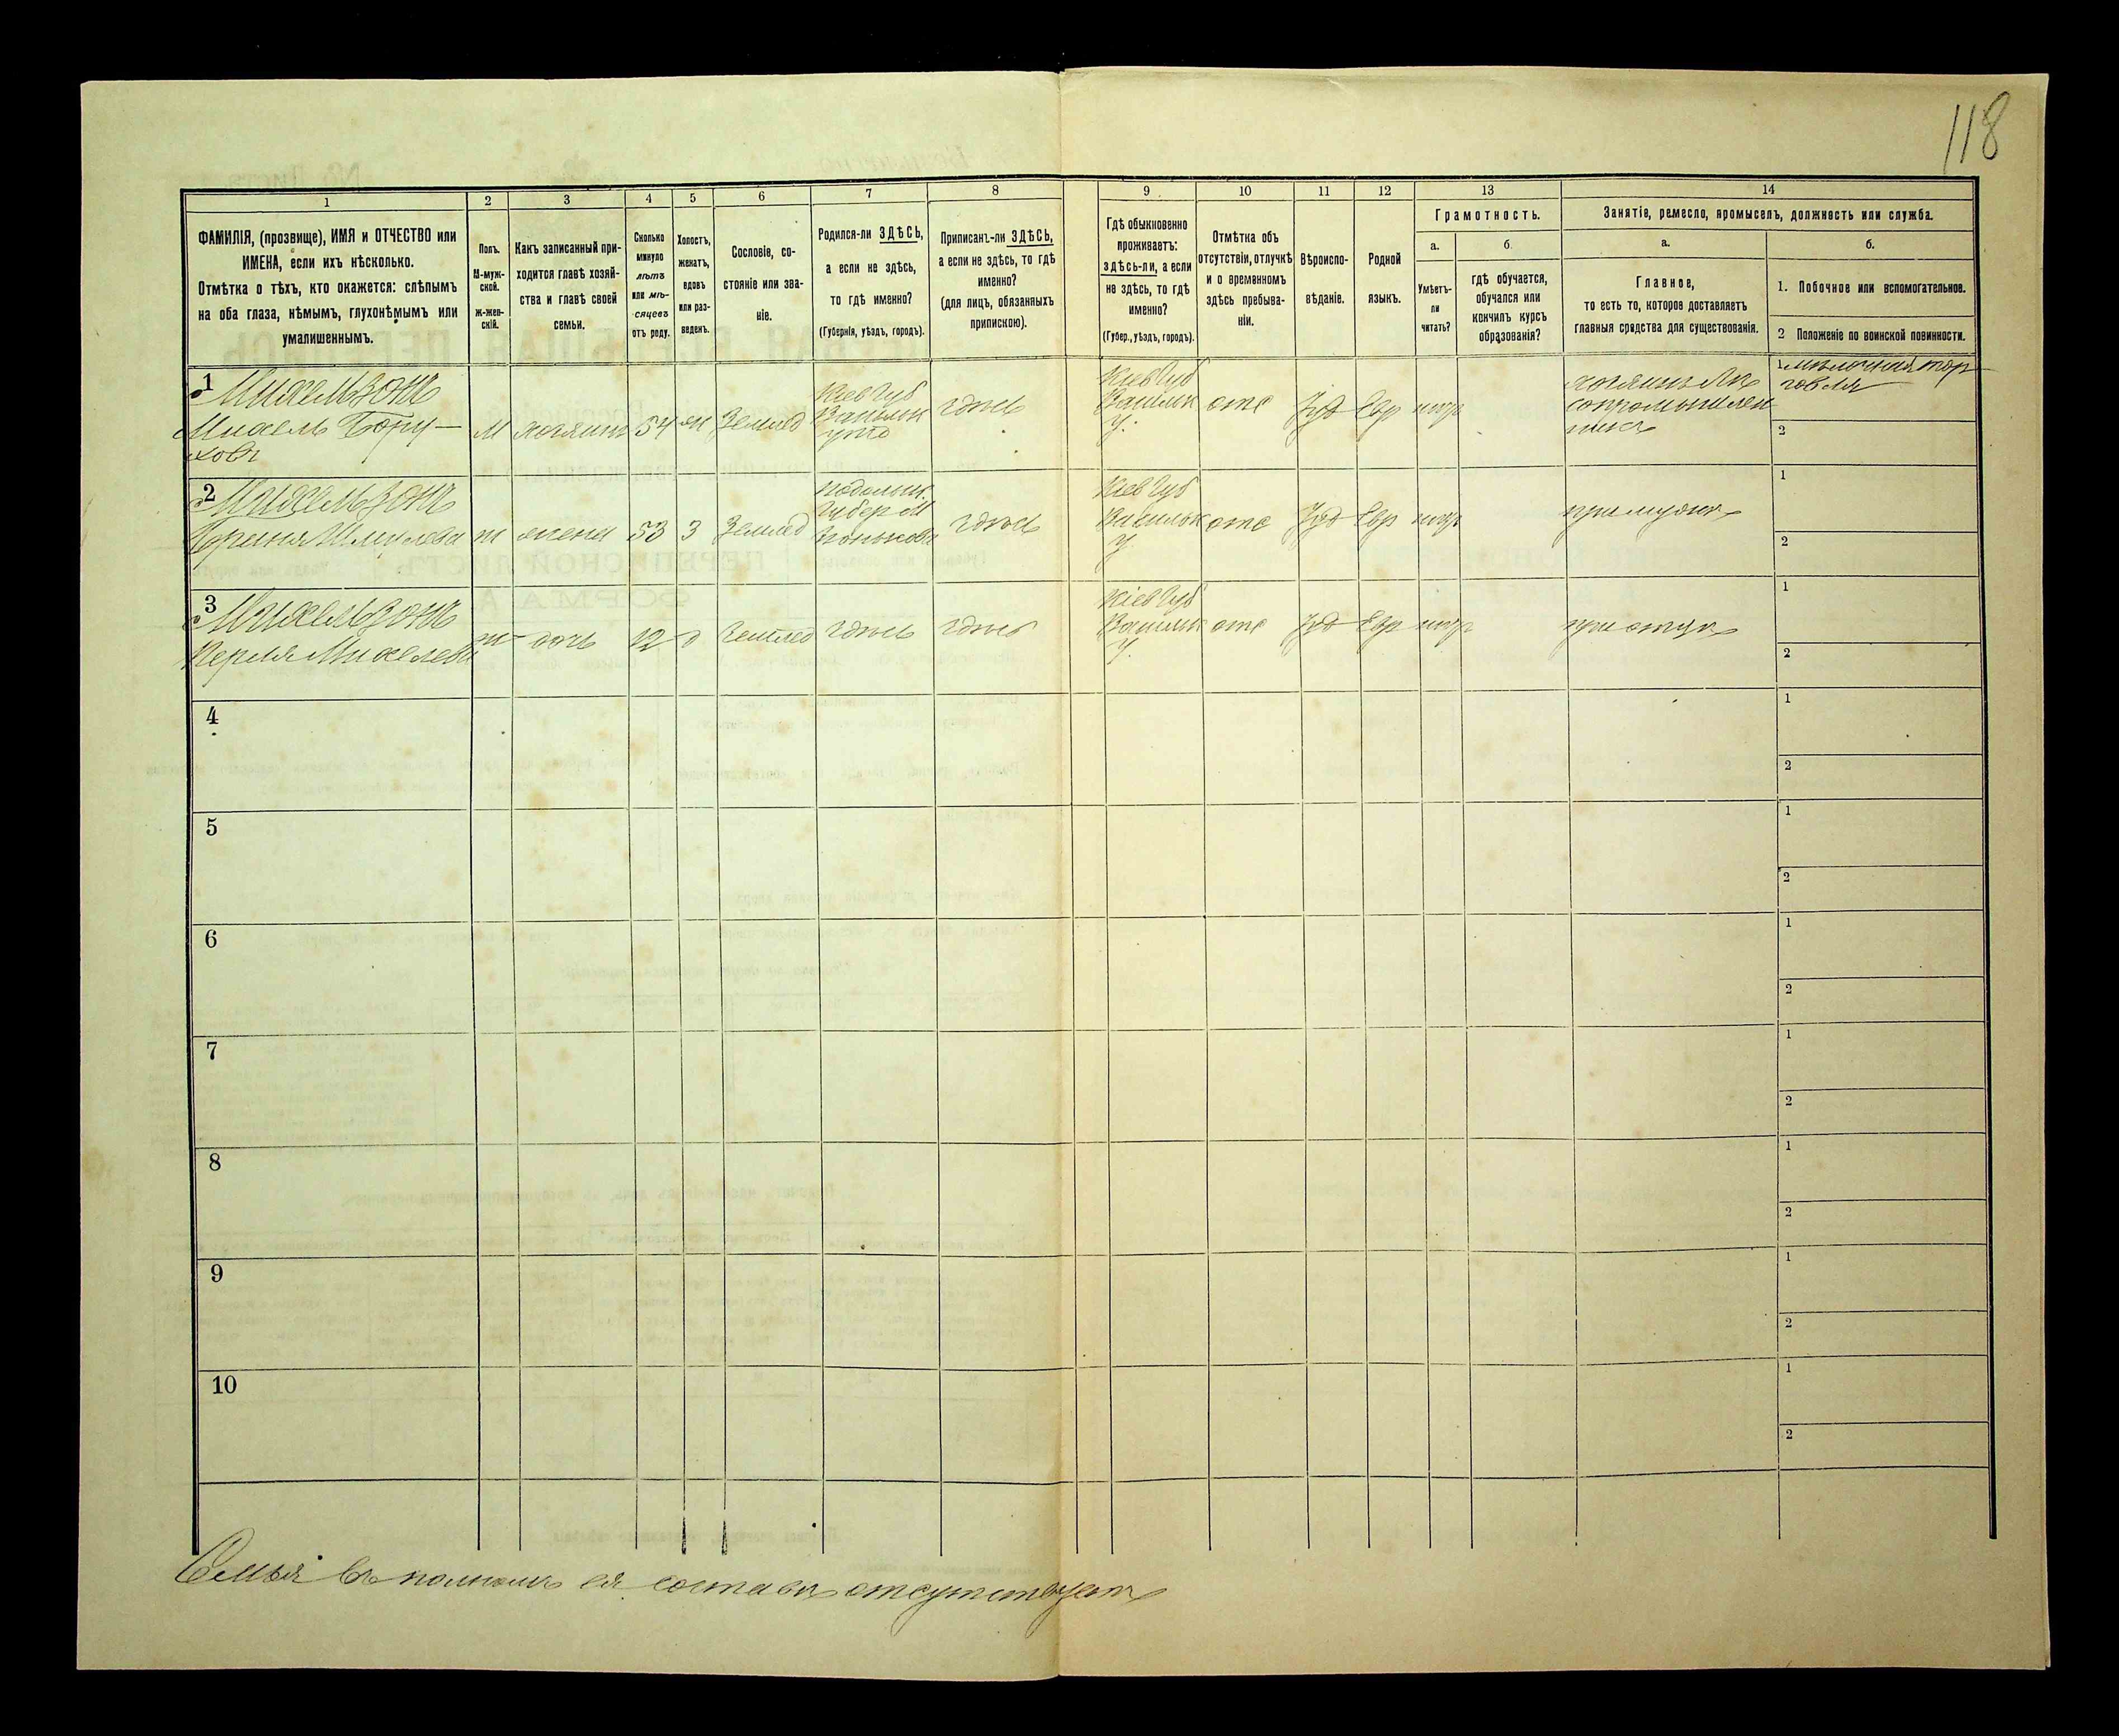 118
1 2 3 4 5 6 7 8 9 10 11 12 13 14
ФАМИЛІЯ, (прозвище), ИМЯ и ОТЧЕСТВО или
ИМЕНА, если ихъ нѣсколько.
Отмѣтка о тѣхъ, кто окажется: слѣпымъ
на оба глаза, нѣмымъ, глухонѣмымъ или
умалишеннымъ.
Полъ.
М-муж-
ской.
ж-жен-
скій.
Какъ записанный при-
ходится главѣ хозяй-
ства и главѣ своей
семьи.
Сколько
минуло
лѣтъ
или мѣ-
сяцевъ
отъ роду.
Холостъ,
женатъ,
вдовъ
или раз-
веденъ.
Сословіе, со-
стояніе или зва-
ніе.
Родился-ли ЗДѢСЬ,
а если не здѣсь,
то гдѣ именно?
(Губернія, уѣздъ, городъ).
Приписанъ-ли ЗДѢСЬ,
а если не здѣсь, то гдѣ
именно?
(для лицъ, обязанныхъ
припискою).
Гдѣ обыкновенно
проживаетъ:
здѣсь-ли, а если
не здѣсь, то гдѣ
именно?
(Губер., уѣздъ, городъ).
Отмѣтка объ
отсутствіи, отлучкѣ
и о временномъ
здѣсь пребыва-
ніи.
Вѣроиспо-
вѣданіе.
Родной
языкъ.
Грамотность.
а.
Умѣетъ-
ли
читать?
б.
гдѣ обучается,
обучался или
кончилъ курсъ
образованія?
Занятіе, ремесло, промыселъ, должность или служба.
а.
Главное,
то есть то, которое доставляетъ
главныя средства для существованія.
б.
1. Побочное или вспомогательное.
2 Положеніе по воинской повинности.
1
Михельзонъ
Михель Бору-
ховъ
М
хозяинъ
54
ж
Землед
Кіев Губ
Васильк
здѣсь
Кіев Губ
Васильк
У.
отс
Іуд
Евр
сопромышлен
мѣлочная тор-
говля
2
2
Михельзонъ
ж
жена
53
З
Землед
Подольск.
Губер
здѣсь
Кіев Губ
Васильк
У.
отс
Іуд
Евр
при мужѣ
1
2
3
Михельзонъ
Перля Михелева
ж
дочь
12
д
Землед
здѣсь
здѣсь
Кіев Губ
Васильк
У.
отс
Іуд
Евр
при отцѣ
1
2
4
1
2
5
1
2
6
1
2
7
1
2
8
1
2
9
1
2
10
1
2
Семья въ полномъ ея составѣ отсутствуетъ